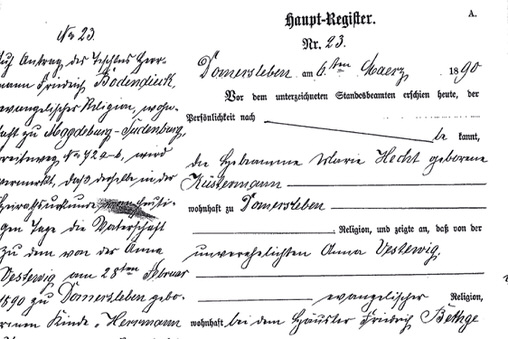 No 23.
Auf Antrag des Tischlers Herr-
mann Friedrich Bodendieck,
evangelischer Religion, wohn-
haft zu Magdeburg-Sudenburg,
No 42 wird
vermerkt, daß derselbe in der
Heiratsurkunde heuti-
gen Tage die Vaterschaft
zu dem von der Anna
Vesterwig am 28ten Februar
1890 zu Domersleben gebo-
renen Kinde, Herrmann
Haupt-Register.
A.
Nr. 23.
Domersleben am 6ten Maerz 1890
Vor dem unterzeichneten Standesbeamten erschien heute, der
Persönlichkeit nach
be kannt,
die Hebamme Marie Hecht geborene
Küstermann
wohnhaft zu Domersleben
Religion, und zeigte an, daß von der
unverehelichten Anna Vesterwig,
evangelischer Religion,
wohnhaft bei dem Häusler Friedrich Bethge